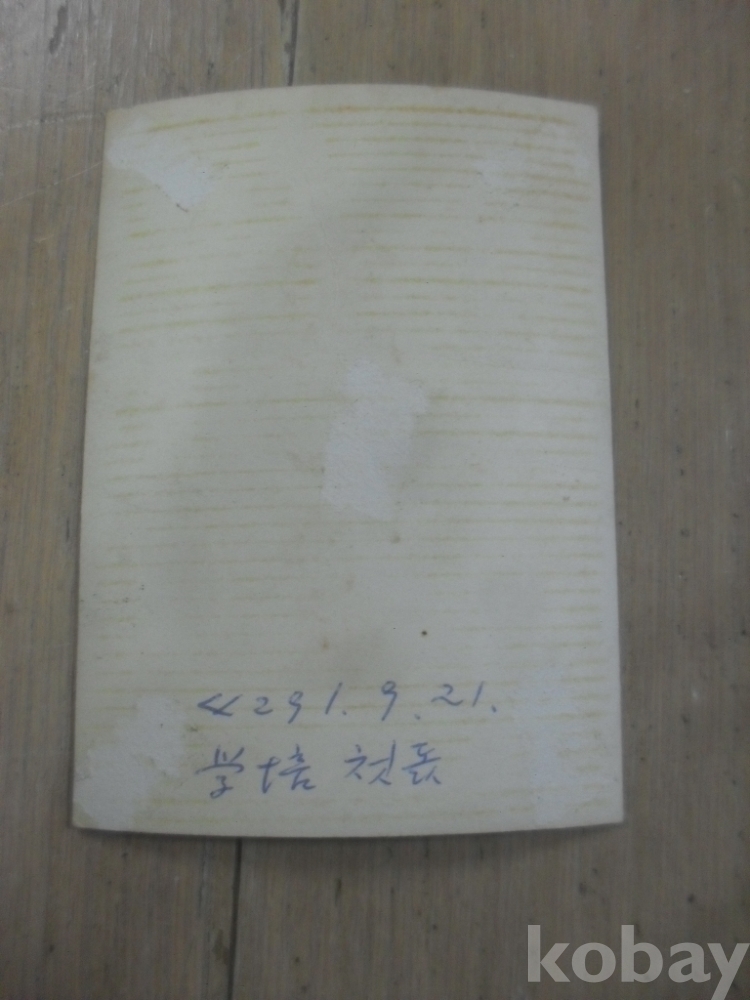 4291. 9. 21.
学培 첫돐
kobay